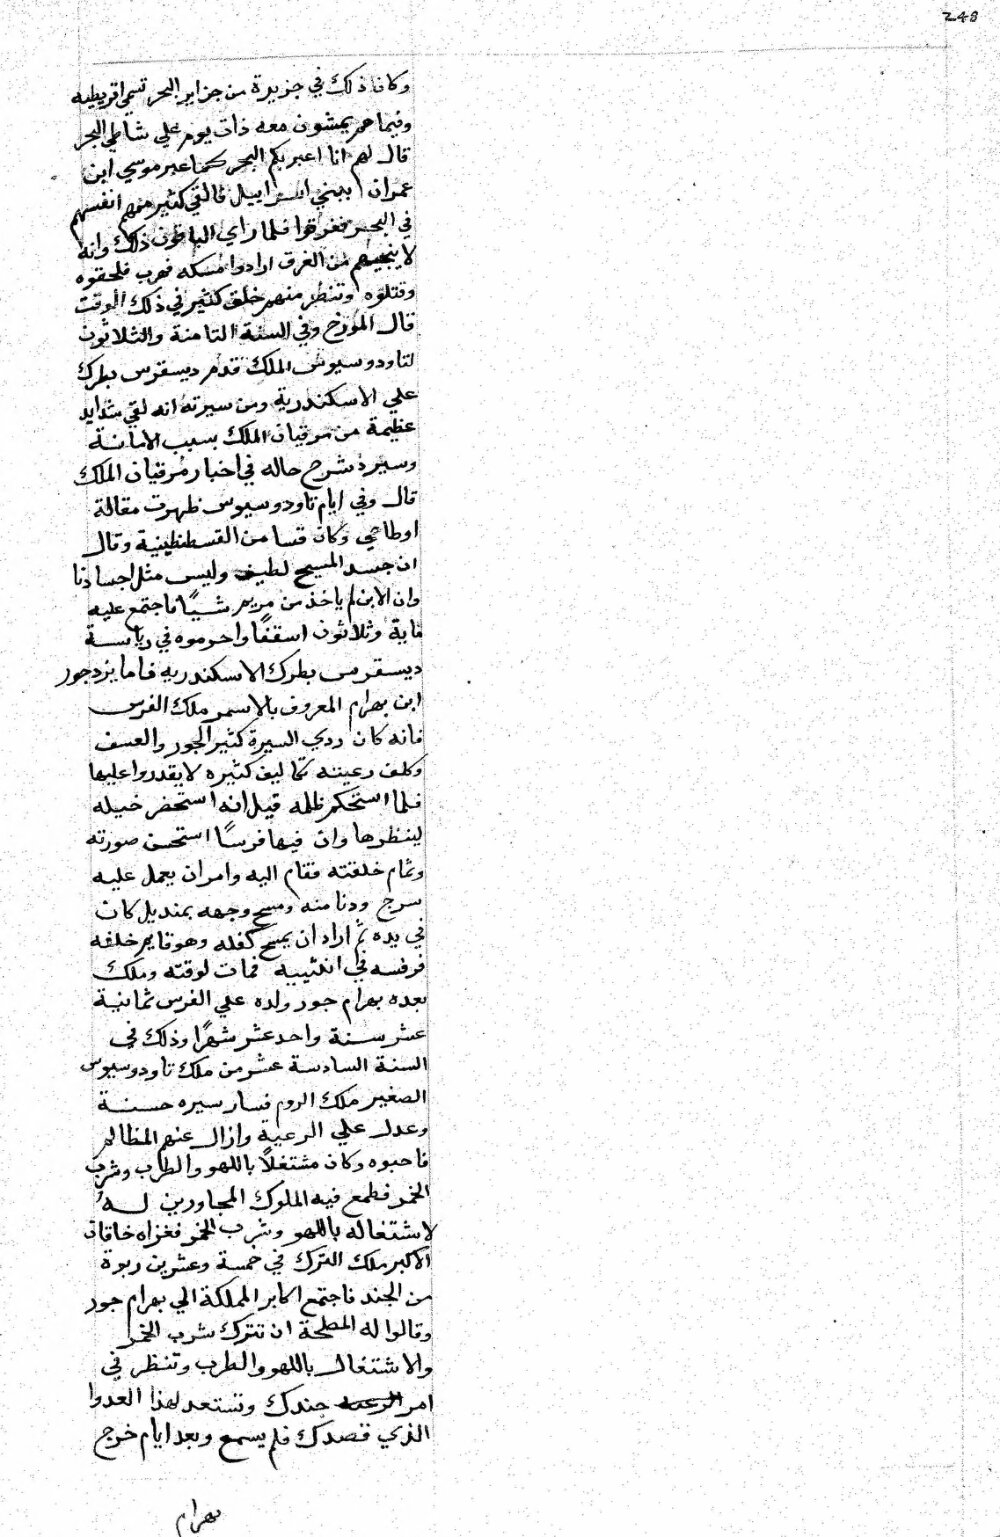 248
وكان ذلك في جزيرة من جزاير البحر تسمي اقريطيه
وفيما هم يمشون معه ذات يوم علي شاطي البحر
قال لهم انا اعبر بكم البحر كما عبر موسي ابن
عمران ببني اسراييل فالقي كثير منهم انفسهم
في البحر فغرقوا فلما راي الباقون ذلك وانه
لا ينجيهم من الغرق ارادوا مسكه فهرب فلحقوه
وقتلوه وتنصر منهم خلق كثير في ذلك الوقت
قال المورخ وفي السنة الثامنة والثلاثون
لتاودوسيوس الملك قدم ديسقرس بطرك
علي الاسكندرية ومن سيرته انه لقي شدايد
عظيمة من مرقيان الملك بسبب الامانة
وسيرد شرح حاله في اخبار مرقيان الملك
قال وفي ايام تاودوسيوس ظهرت مقالة
اوطاخي وكان قسا من القسطنطينية وقال
ان جسد المسيح لطيف وليس مثل اجسادنا
وان الابن لم ياخذ من مريم شيًا فاجتمع عليه
ماية وثلاثون اسقفًا واحرموه في رياسة
ديسقرس بطرك الاسكندريه فاما يزدجور
ابن بهرام المعروف بالاسمر ملك الفرس
فانه كان ردي السيرة كثير الجور والعسف
وكلف رعيته تكاليف كثيره لا يقدروا عليها
فلما استحكم ظلمه قيل انه استحضر خيله
لينظرها وان فيها فرسًا استحسن صورته
وتمام خلقته فقام اليه وامر ان يعمل عليه
سرج ودنا منه ومسح وجهه بمنديل كان
في يده ثم اراد ان يمسح كفله وهو قايم خلفه
فرفسه في انثييه فمات لوقته وملك
بعده بهرام جور ولده علي الفرس ثمانية
عشر سنة واحد عشر شهرًا وذلك في
السنة السادسة عشر من ملك تاودوسيوس
الصغير ملك الروم فسار سيره حسنة
وعدل علي الرعية وازال عنهم المظالم
فاحبوه وكان مشتغلًا باللهو والطرب وشرب
الخمر فطمع فيه الملوك المجاورين له
لاشتغاله باللهو وشرب الخمر فغزاه خاقان
الاكبر ملك الترك في خمسة وعشرين ربوة
من الجند فاجتمع اكابر المملكة الي بهرام جور
وقالوا له المصلحة ان تترك شرب الخمر
والاشتغال باللهو والطرب وتنظر في
امر جندك وتستعد لهذا العدوا
الذي قصدك فلم يسمع وبعد ايام خرج
بهرام